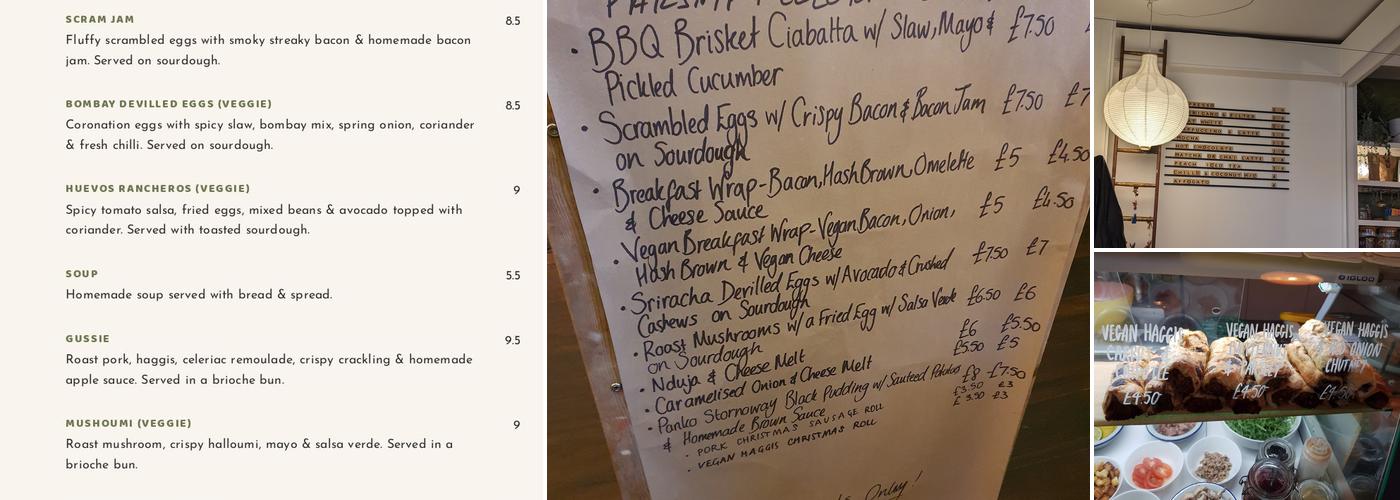 SCRAM JAM 8.5
Fluffy scrambled eggs with smoky streaky bacon & homemade bacon
jam. Served on sourdough.
BOMBAY DEVILLED EGGS (VEGGIE) 8.5
Coronation eggs with spicy slaw, bombay mix, spring onion, coriander
& fresh chilli. Served on sourdough.
HUEVOS RANCHEROS (VEGGIE) 9
Spicy tomato salsa, fried eggs, mixed beans & avocado topped with
coriander. Served with toasted sourdough.
SOUP 5.5
Homemade soup served with bread & spread.
GUSSIE 9.5
Roast pork, haggis, celeriac remoulade, crispy crackling & homemade
apple sauce. Served in a brioche bun.
MUSHOUMI (VEGGIE) 9
Roast mushroom, crispy halloumi, mayo & salsa verde. Served in a
brioche bun.
• BBQ Brisket Ciabatta w/ Slaw, Mayo & £7.50
Pickled Cucumber
• Scrambled Eggs w/ Crispy Bacon & Bacon Jam £7.50 £7
on Sourdough
• Breakfast Wrap - Bacon, Hash Brown, Omelette £5 £4.50
& Cheese Sauce
• Vegan Breakfast Wrap - Vegan Bacon, Onion, £5 £4.50
Hash Brown & Vegan Cheese
• Sriracha Devilled Eggs w/ Avocado & Crushed £7.50 £7
Cashews on Sourdough
• Roast Mushrooms w/ a Fried Egg w/ Salsa Verde £6.50 £6
on Sourdough
• Nduja & Cheese Melt £6 £5.50
• Caramelised Onion & Cheese Melt £5.50 £5
• Panko Stornoway Black Pudding w/ Sauteed Potatoes £8 £7.50
& Homemade Brown Sauce
• PORK CHRISTMAS SAUSAGE ROLL £3.50 £3
• VEGAN HAGGIS CHRISTMAS ROLL £3.50 £3
Only!
MOCHA
HOT CHOCOLATE
MATCHA OR CHAI LATTE
PEACH ICED TEA
CHILLI & COCONUT MIO
AFFOGATO
IGLOO
VEGAN HAGGIS
£4.50
VEGAN HAGGIS
£4.50
VEGAN HAGGIS
ONION
CHUTNEY
£4.50